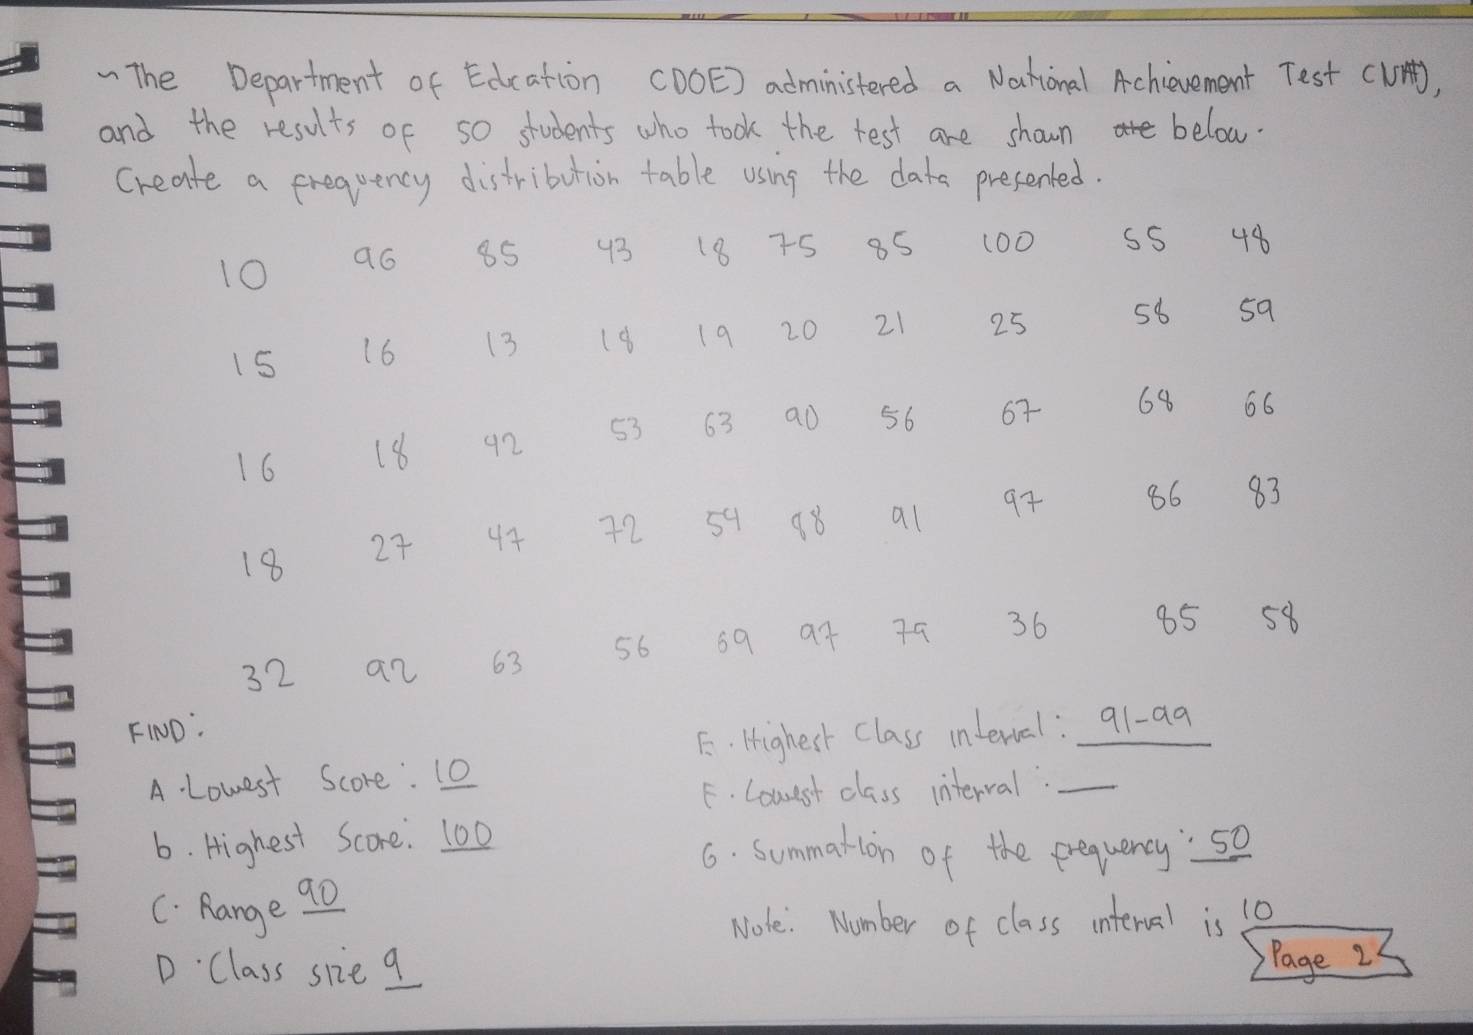 ~ The Department of Education (DOE) administered a National Achievement Test (NAT),
and the results of 50 students who took the test are shown are below.
Create a frequency distribution table using the data presented.
10 96 85 43 18 75 85 100 55 48
15 16 13 18 19 20 21 25 58 59
16 18 92 53 63 90 56 67 68 66
18 27 47 72 54 88 91 97 86 83
32 92 63 56 69 97 79 36 85 58
FIND:
A. Lowest Score: 10
b. Highest Score: 100
C. Range 90
D. Class size 9
E. Highest Class interval: 91-99
F. Lowest class interval: __
G. Summation of the frequency: 50
Note: Number of class interval is 10
Page 2